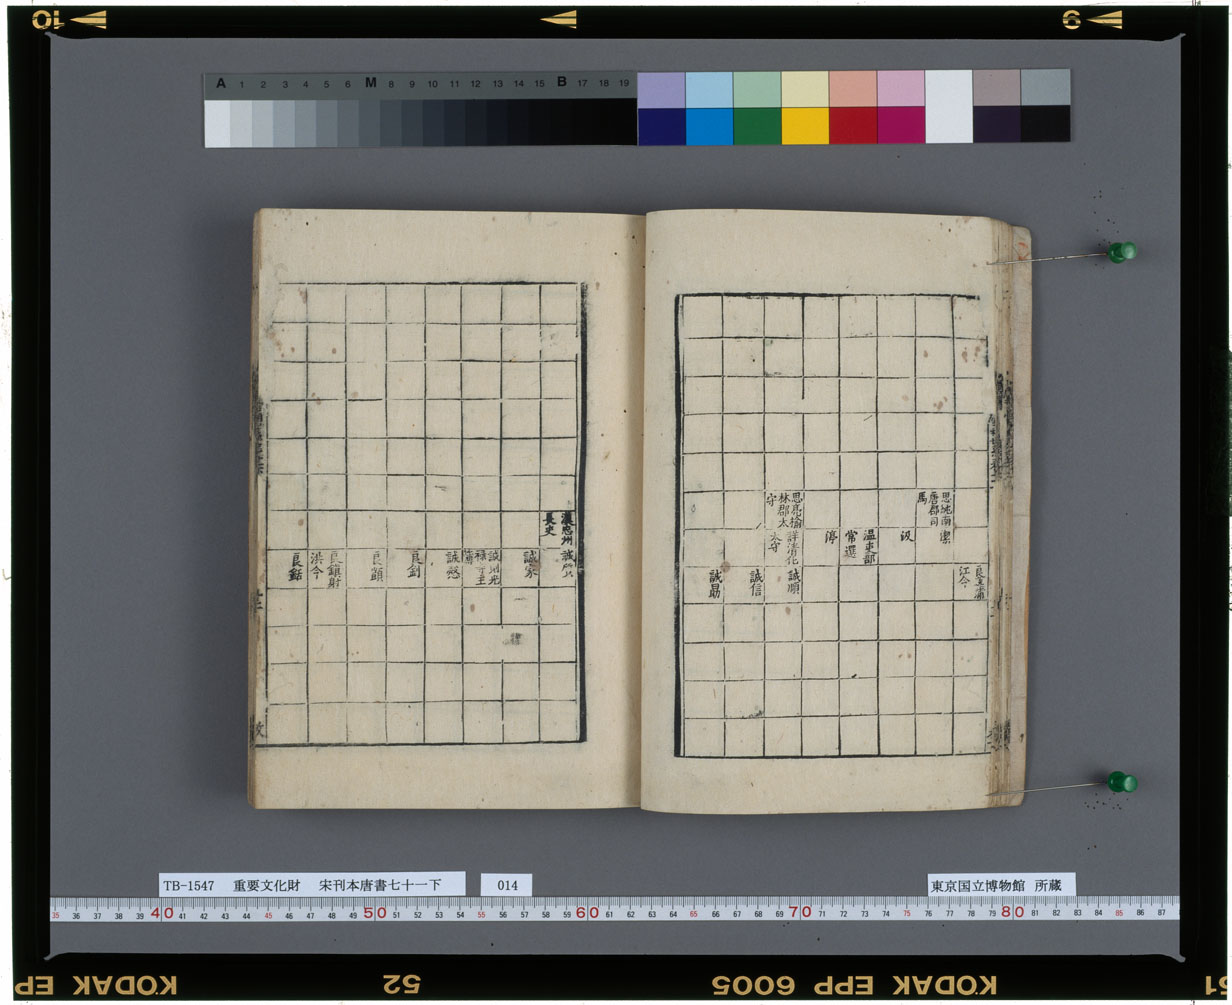 10
9
A 1 2 3 4 5 6 M 8 9 10 11 12 13 14 15 B 17 18 19
思城南
唐郡司
馬
潔
汲
江令
溫吏部
常選
渟
思亮榆
林郡太
守
詳清化
太守
誠順
誠信
誠勗
漢忠州
長史
誠家
誠愁
良劍
良顗
洪令
良銛
TB-1547 重要文化財 宋刊本唐書七十一下
014
東京国立博物館 所蔵
35 36 37 38 39 40 41 42 43 44 45 46 47 48 49 50 51 52 53 54 55 56 57 58 59 60 61 62 63 64 65 66 67 68 69 70 71 72 73 74 75 76 77 78 79 80 81 82 83 84 85 86 87
KODAK EP
52
KODAK EPP 6005
51